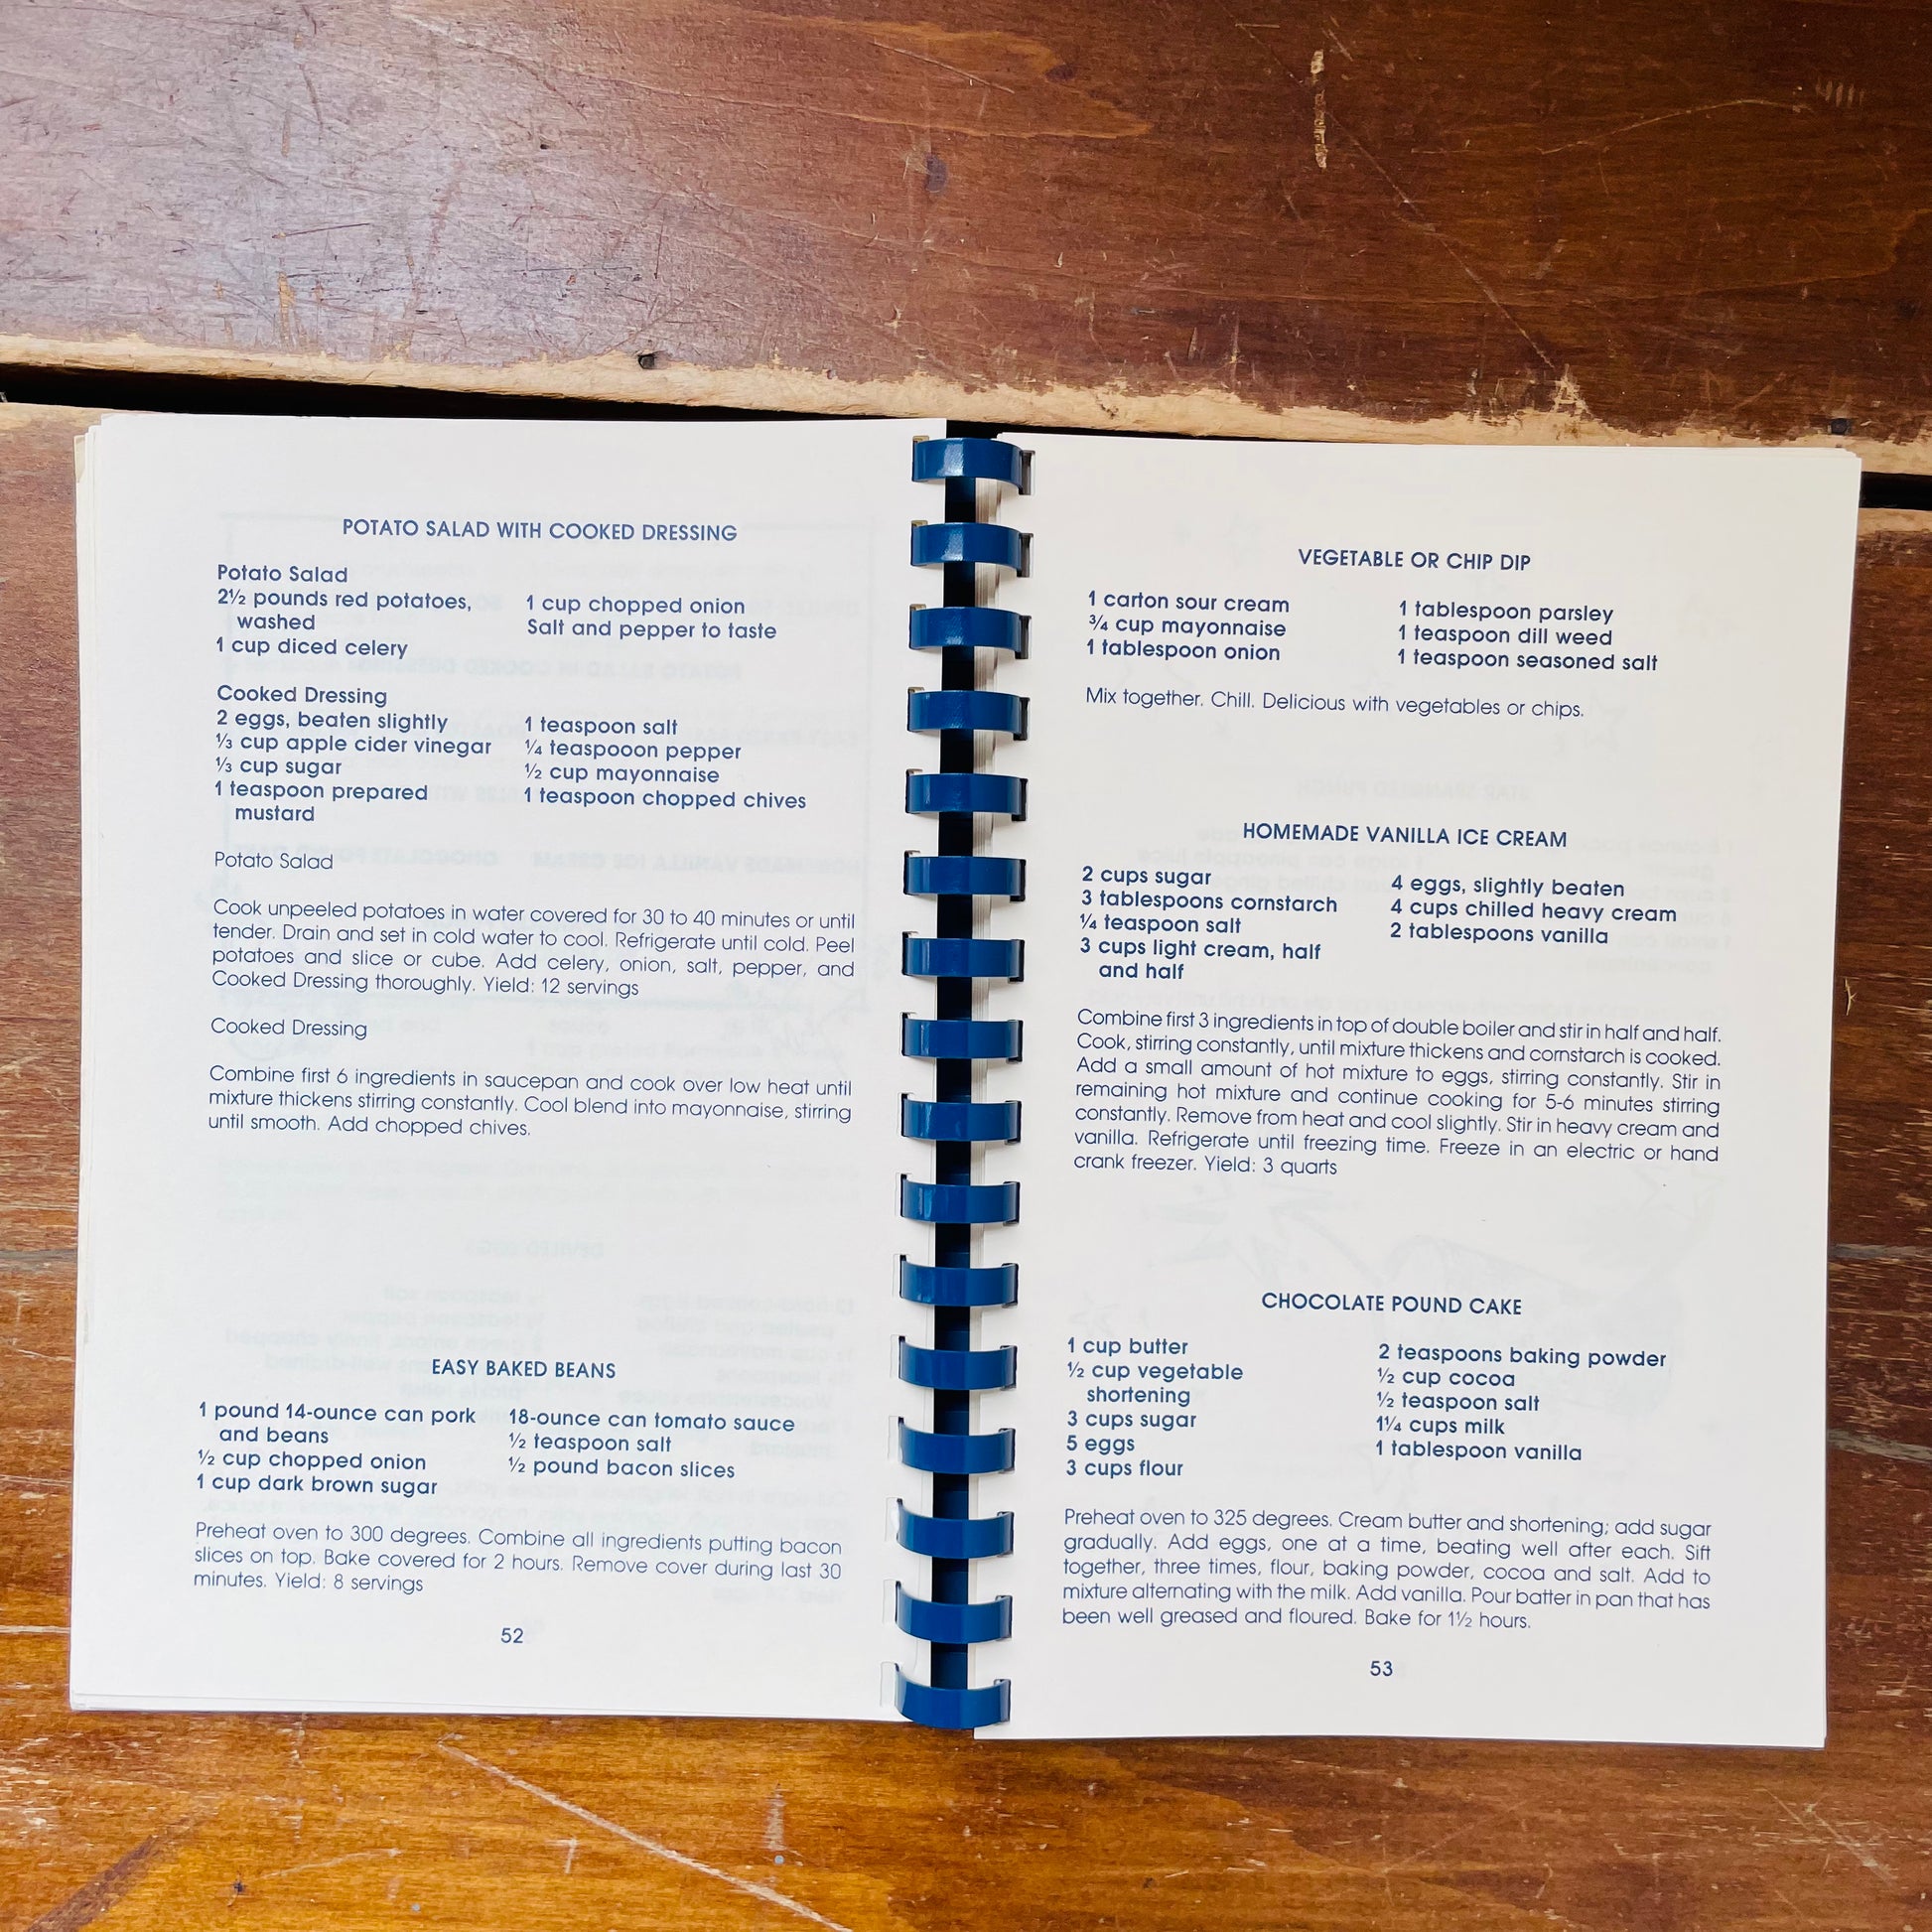 POTATO SALAD WITH COOKED DRESSING
Potato Salad
2½ pounds red potatoes,
washed
1 cup diced celery
1 cup chopped onion
Salt and pepper to taste
Cooked Dressing
2 eggs, beaten slightly
⅓ cup apple cider vinegar
⅓ cup sugar
1 teaspoon prepared
mustard
1 teaspoon salt
¼ teaspooon pepper
½ cup mayonnaise
1 teaspoon chopped chives
Potato Salad
Cook unpeeled potatoes in water covered for 30 to 40 minutes or until
tender. Drain and set in cold water to cool. Refrigerate until cold. Peel
potatoes and slice or cube. Add celery, onion, salt, pepper, and
Cooked Dressing thoroughly. Yield: 12 servings
Cooked Dressing
Combine first 6 ingredients in saucepan and cook over low heat until
mixture thickens stirring constantly. Cool blend into mayonnaise, stirring
until smooth. Add chopped chives.
EASY BAKED BEANS
1 pound 14-ounce can pork
and beans
½ cup chopped onion
1 cup dark brown sugar
18-ounce can tomato sauce
½ teaspoon salt
½ pound bacon slices
Preheat oven to 300 degrees. Combine all ingredients putting bacon
slices on top. Bake covered for 2 hours. Remove cover during last 30
minutes. Yield: 8 servings
52
VEGETABLE OR CHIP DIP
1 carton sour cream
¾ cup mayonnaise
1 tablespoon onion
1 tablespoon parsley
1 teaspoon dill weed
1 teaspoon seasoned salt
Mix together. Chill. Delicious with vegetables or chips.
HOMEMADE VANILLA ICE CREAM
2 cups sugar
3 tablespoons cornstarch
¼ teaspoon salt
3 cups light cream, half
and half
4 eggs, slightly beaten
4 cups chilled heavy cream
2 tablespoons vanilla
Combine first 3 ingredients in top of double boiler and stir in half and half.
Cook, stirring constantly, until mixture thickens and cornstarch is cooked.
Add a small amount of hot mixture to eggs, stirring constantly. Stir in
remaining hot mixture and continue cooking for 5-6 minutes stirring
constantly. Remove from heat and cool slightly. Stir in heavy cream and
vanilla. Refrigerate until freezing time. Freeze in an electric or hand
crank freezer. Yield: 3 quarts
CHOCOLATE POUND CAKE
1 cup butter
½ cup vegetable
shortening
3 cups sugar
5 eggs
3 cups flour
2 teaspoons baking powder
½ cup cocoa
½ teaspoon salt
1¼ cups milk
1 tablespoon vanilla
Preheat oven to 325 degrees. Cream butter and shortening; add sugar
gradually. Add eggs, one at a time, beating well after each. Sift
together, three times, flour, baking powder, cocoa and salt. Add to
mixture alternating with the milk. Add vanilla. Pour batter in pan that has
been well greased and floured. Bake for 1½ hours.
53